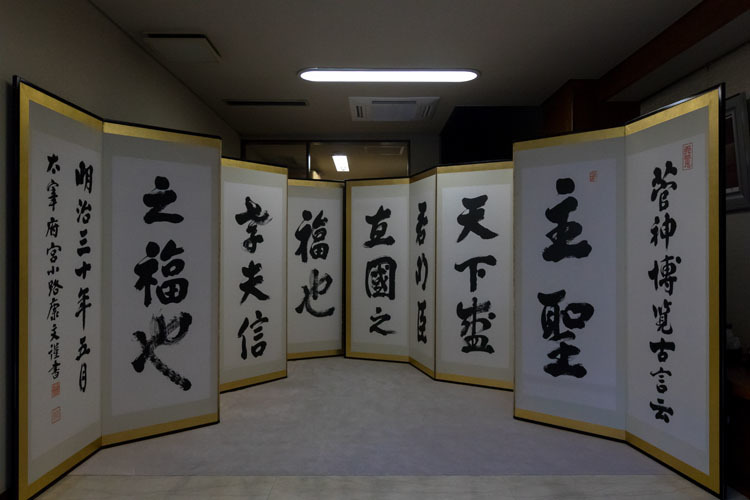 菅神博覧古言云
主聖
天下盛
君明臣
直國之
福也
孝夫信
之福也
明治三十年五月
太宰府宮小路康文謹書